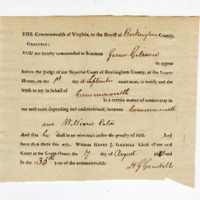 THE Commonwealth of Virginia, to the Sheriff of Rockingham County,
GREETING:
YOU are hereby commanded to Summon James Gilmore
to appear
before the Judge of our Superior Court of Rockingham County, at the Court-
House, on the 1st day of September next, to testify and the
truth to say in behalf of Commonwealth
in a certain matter of controversy in
our said court depending and undetermined, between Commonwealth
and William
And this he shall in no wise omit under the penalty of
And have then there this writ. Witness HENRY J. GAMBILL Clerk of our said
Court at the Court-House the 17 day of August
in the 35th year of the commonwealth.
H J Gambill